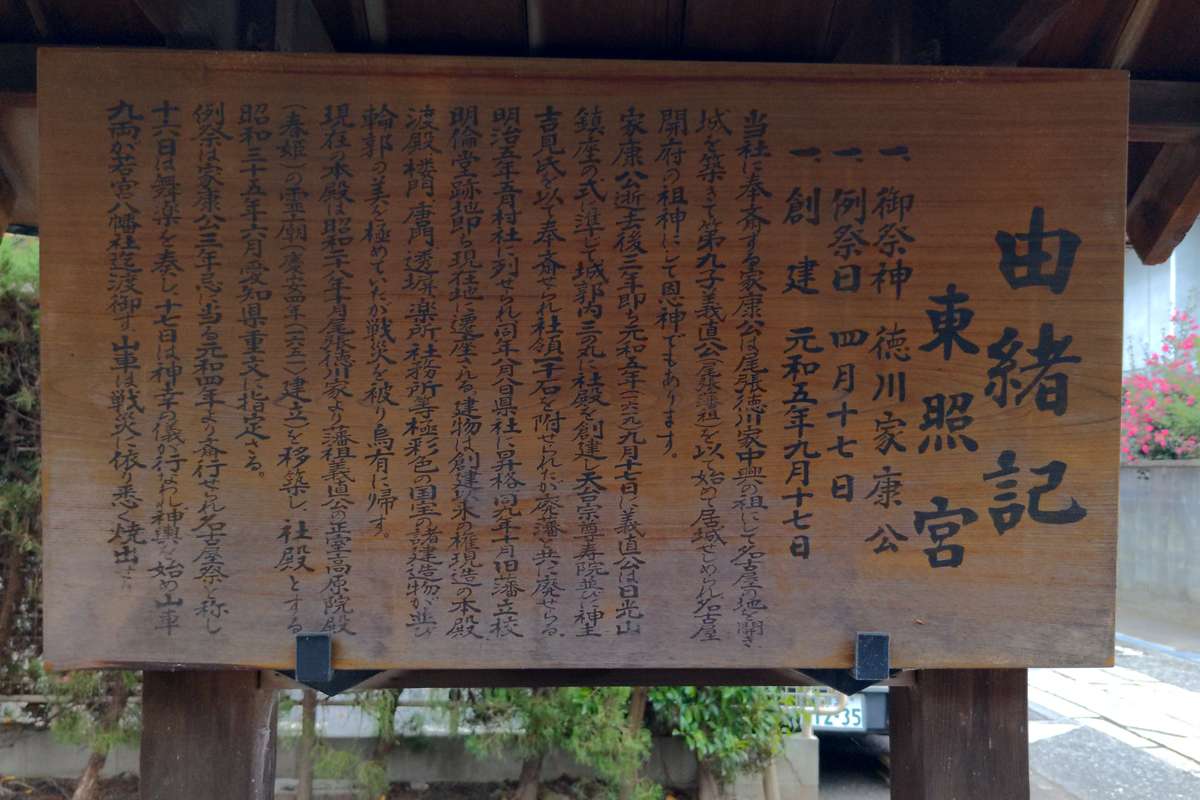 由緒記
東照宮
一、御祭神 徳川家康公
一、例祭日 四月十七日
一、創建 元和五年九月十七日
当社に奉斎する家康公は尾張徳川家中興の祖にして名古屋の地を開き
城を築きて第九子義直公(尾張藩祖)を以て始めて居城せしめられ名古屋
開府の祖神にして恩神でもあります。
家康公逝去後三年即ち元和五年(一六一九)九月十七日に義直公は日光山
鎮座の式に準じて城郭内三の丸に社殿を創建し天台宗尊寿院並びに神主
吉見氏を以て奉斎せられ社領一千石を附せられたが廃藩と共に廃せらる。
明治五年五月村社に列せられ同年八月県社に昇格同九年十月旧藩立校
明倫堂跡地即ち現住地に遷座される 建物は創建以来の権現造の本殿
渡殿 楼門 唐門 透塀 楽所 社務所等極彩色の国宝の諸建造物が並び
輪郭の美を極めていたが戦災を被り烏有に帰す。
現在の本殿は昭和二十八年十月尾張徳川家より藩祖義直公の正室高原院殿
(春姫)の霊廟(慶安四年(一六五一)建立)を移築し、社殿とする
昭和三十五年六月愛知県重文に指定さる。
例祭は家康公三年忌に当る元和四年より斎行せられ名古屋祭と称し
十六日は舞楽を奏し、十七日は神幸の儀が行なわれ神輿を始め山車
九両が若宮八幡社迄渡御す 山車は戦災に依り悉く焼出
1235